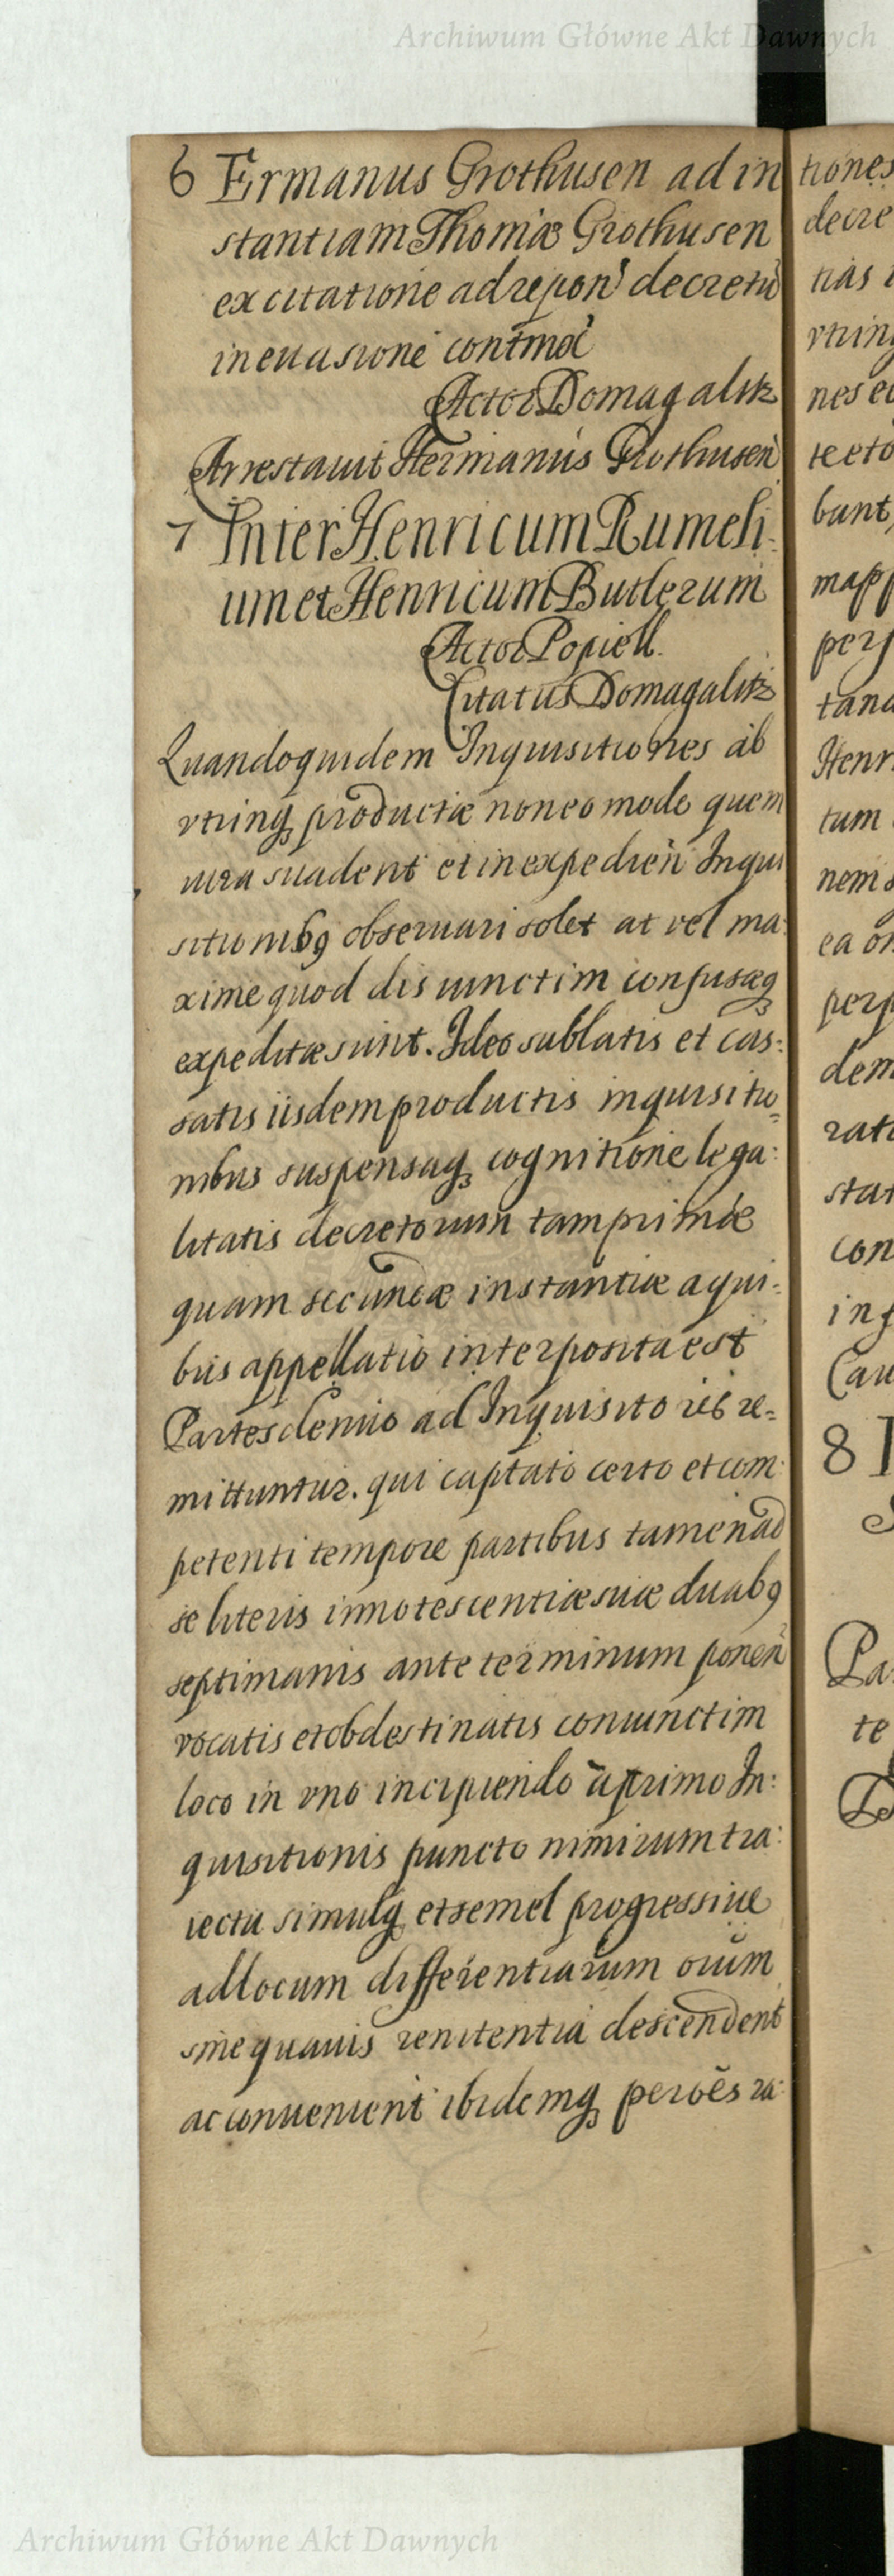 Archiwum Główne Akt Dawnych
6 Ermanus Grothusen ad in
stantiam Thomæ Grothusen
ex citatione ad repon decretū
in euasione contmā
Actor Domagalitz
Arrestauit Hermanus Grothusen
7 Inter Henricum Rumeli-
um et Henricum Butlerum
Actor Popiell.
Citatus Domagalitz
Quandoquidem Inquisitiones ab
vtrinq productæ non eo modo quem
iura suadent et in expedien Inqui
sitionib9 obseruari solet at vel ma:
xime quod disiunctim confusæq
expeditæ sunt. Ideo sublatis et cas:
satis iisdem productis inquisitio
nibus suspensaq cognitione lega:
litatis decretorum tam primæ
quam secundæ instantiæ a qui:
bus appellatio interposita est
Partes denuo ad Inquisitores re=
mittuntur. qui captato certo et com:
petenti tempore partibus tamen ad
se literis innotescentiæ suæ duab9
septimanis ante terminum ponen
vocatis et obdestinatis coniunctim
loco in vno incipiendo a primo In:
quisitionis puncto nimirum tra:
iectu simulq et semel progressiue
ad locum differentiarum oium
sine quauis renitentia descendent
ac conuenient ibidemq per oēs ra:
tiones
decre
tias
vtrinq
nes
te et
bunt
mapp
pers
tand
Henri
tum
nem
ea
perp
dem
rati
stat
con
inf
Cau
8
Pa
te
Archiwum Główne Akt Dawnych